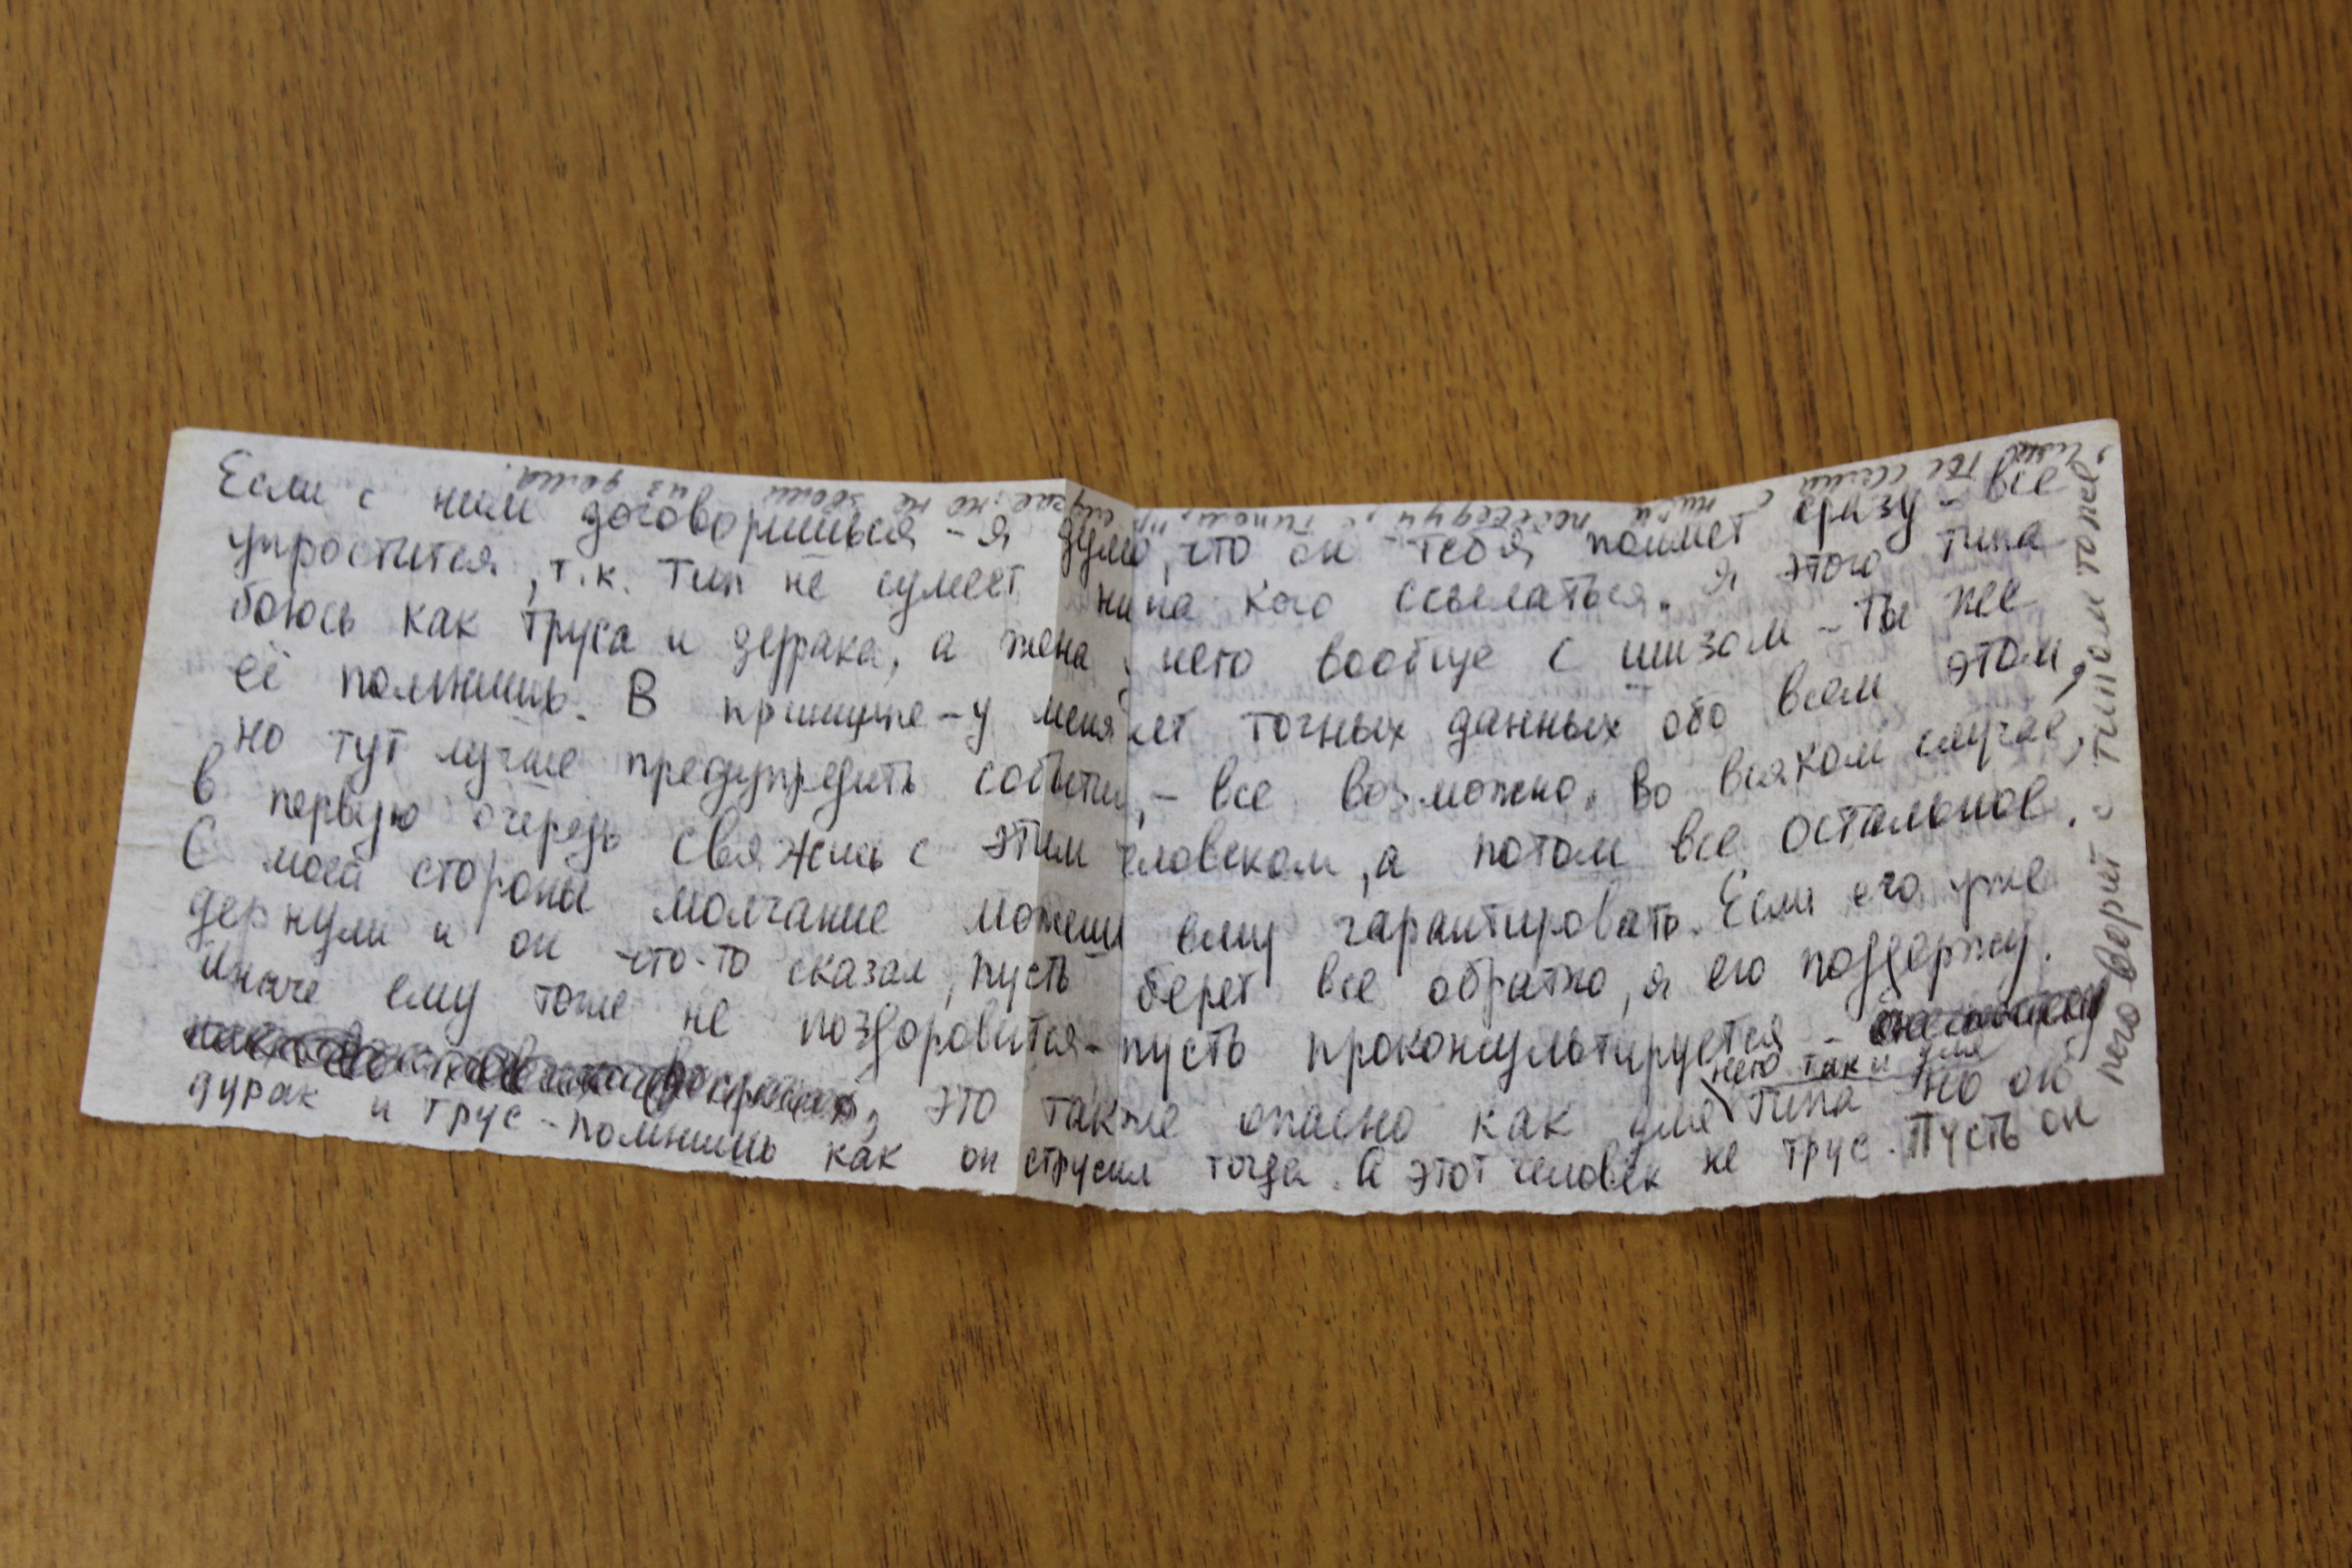 Если с ним договоришься – я думаю, что он тебя поймет сразу – все
упростится, т.к. тип не сумеет ни на кого ссылаться. Я этого типа
боюсь как труса и дурака, а жена у него вообще с шизом – ты же
её помнишь. В принципе – у меня нет точных данных обо всем этом,
но тут лучше предупредить события, – все возможно. Во всяком случае,
в первую очередь свяжись с этим человеком, а потом все остальное.
С моей стороны молчание можешь ему гарантировать. Если его уже
дернули и он что-то сказал, пусть берет все обратно, я его поддержу.
Иначе ему тоже не поздоровится – пусть проконсультируется –
это также опасно как для него так и для типа но он
дурак и трус – помнишь как он струсил тогда. А этот человек не трус. Пусть он
поговорит с типом тоже,
ты сама с ним побеседуй, с типом,
но не звони из дома.